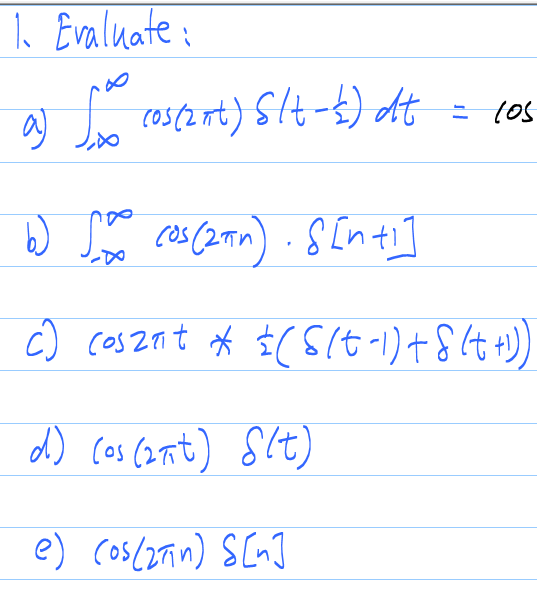 1. Evaluate:
a) ∫_{-∞}^{∞} cos(2πt) δ(t-½) dt = cos
b) ∫_{-∞}^{∞} cos(2πn) · δ[n+1]
c) cos2πt * ½(δ(t-1)+δ(t+1))
d) cos(2πt) δ(t)
e) cos(2πn) δ[n]